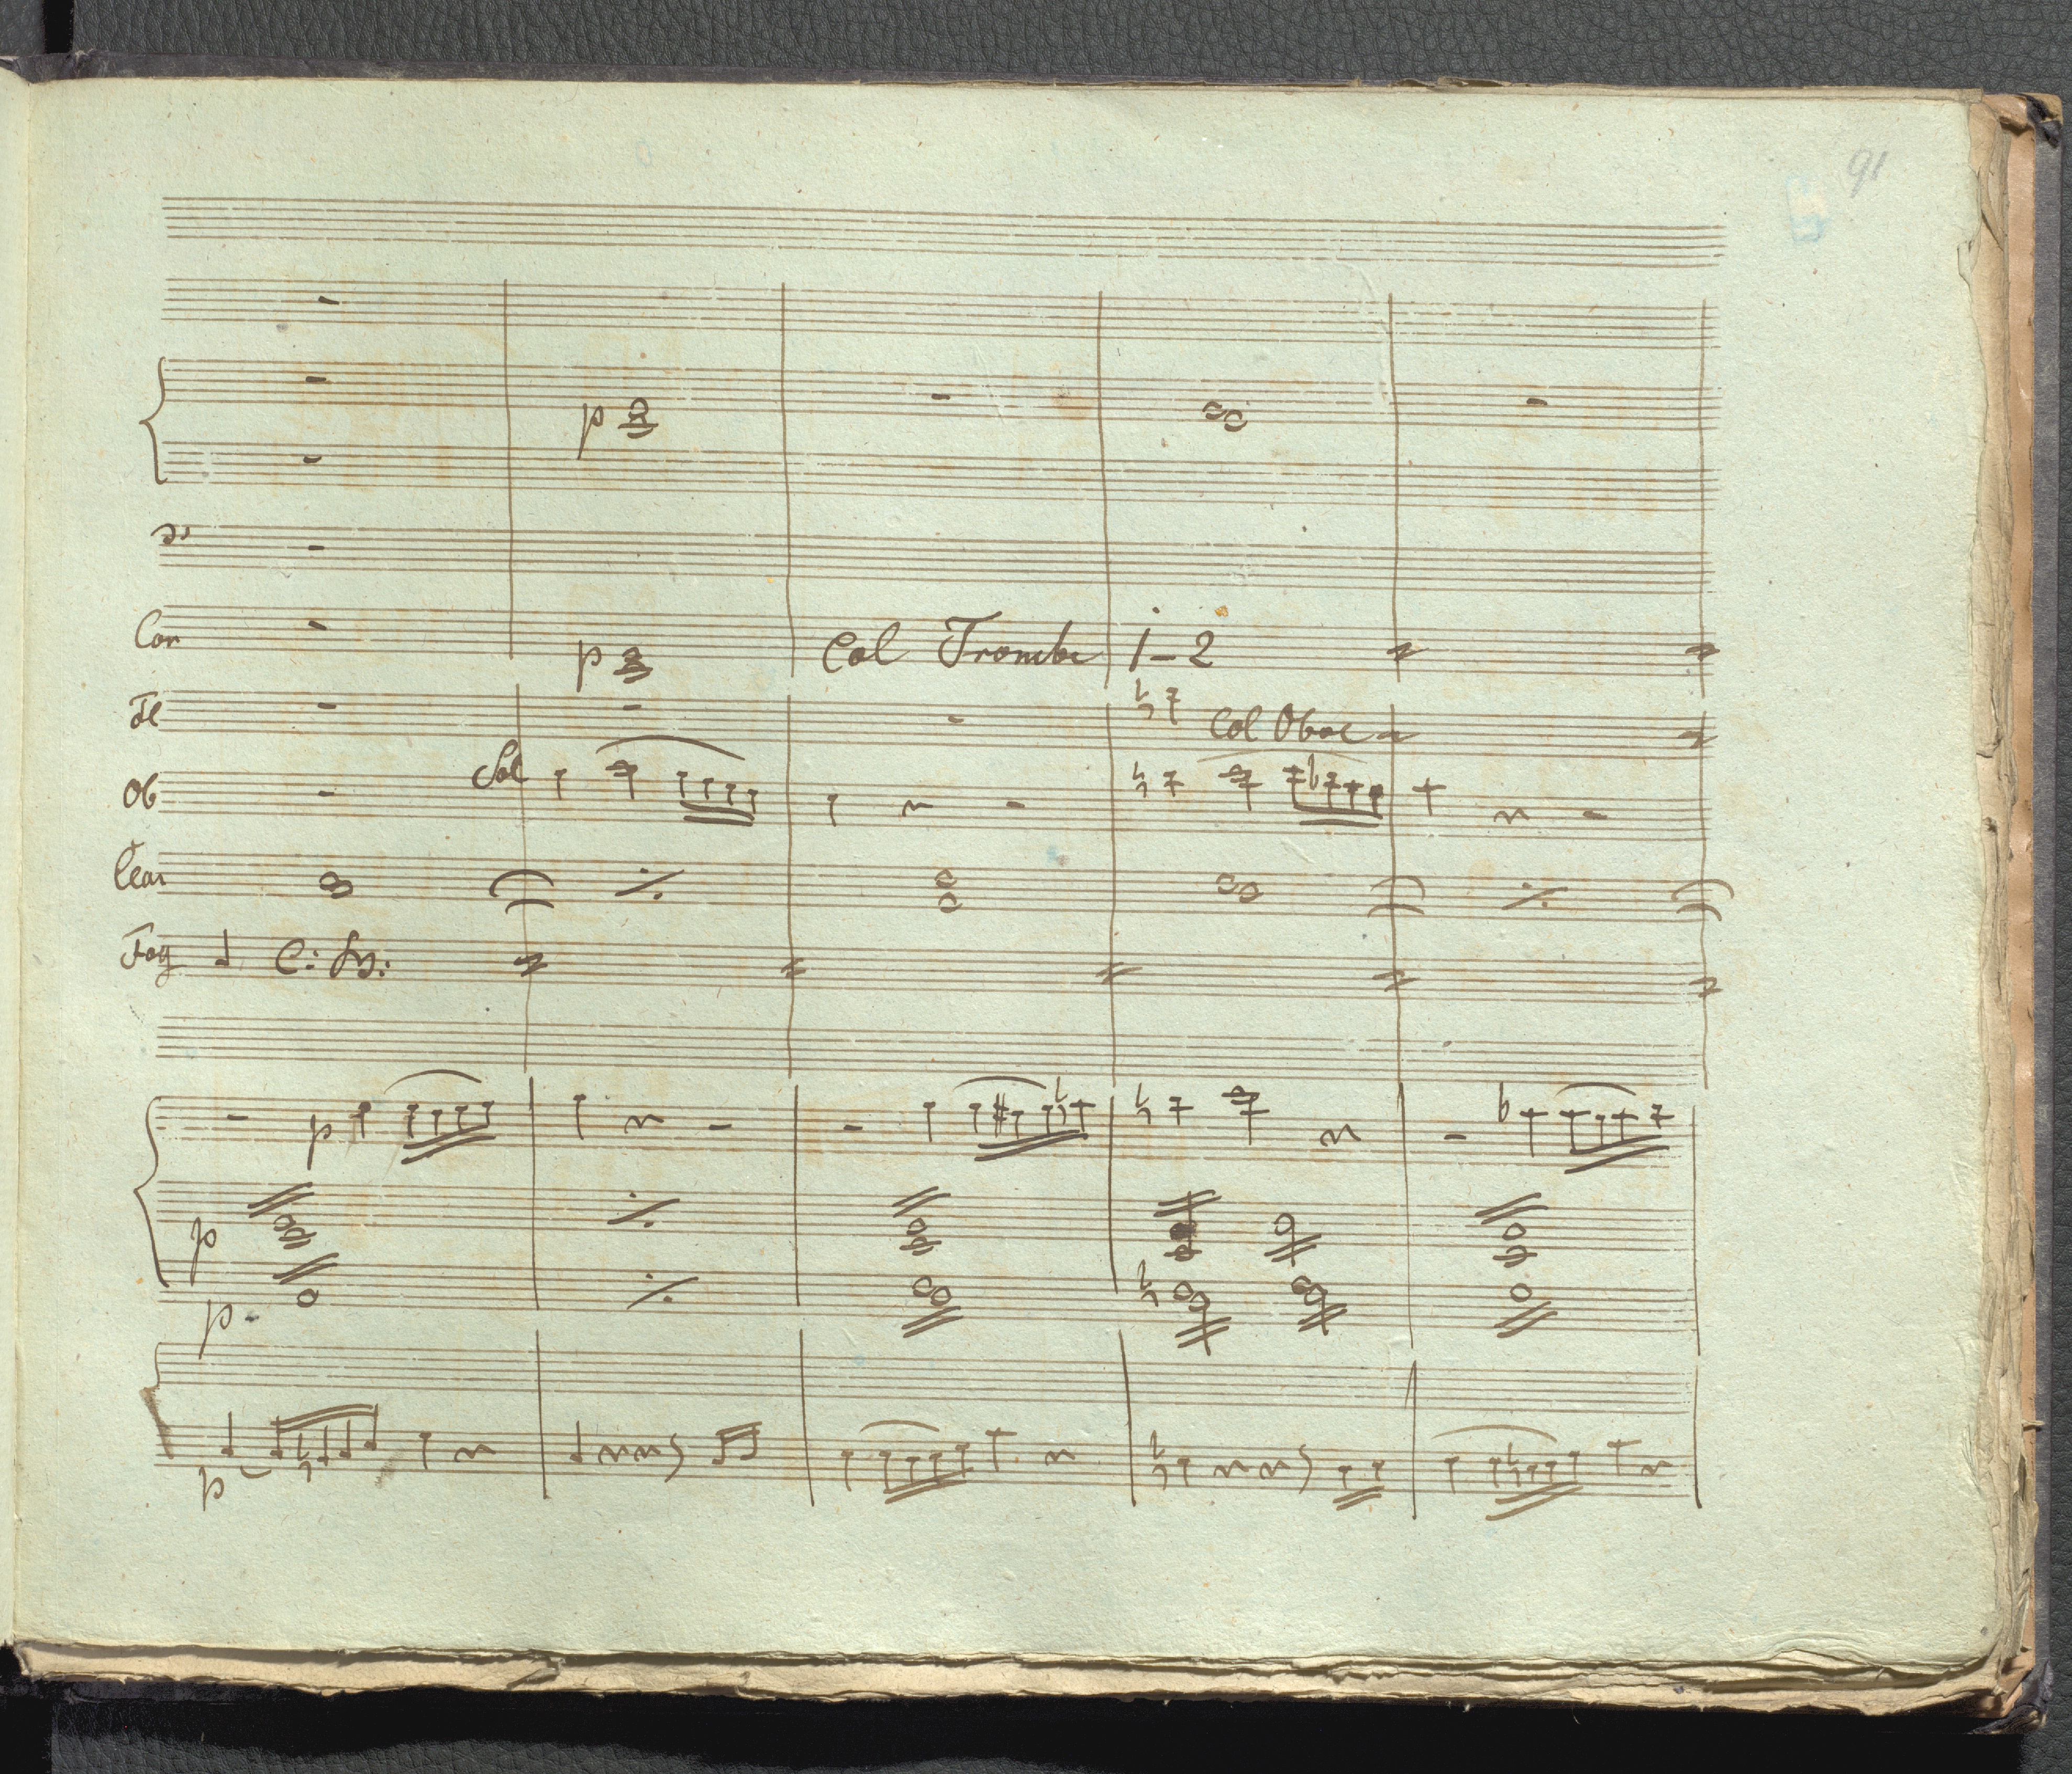 91
p
Cor
p
Col Trombe 1-2
Fl
Col Oboe
Ob
Sol
Clar
Fag
C: B:
p
p
p
p